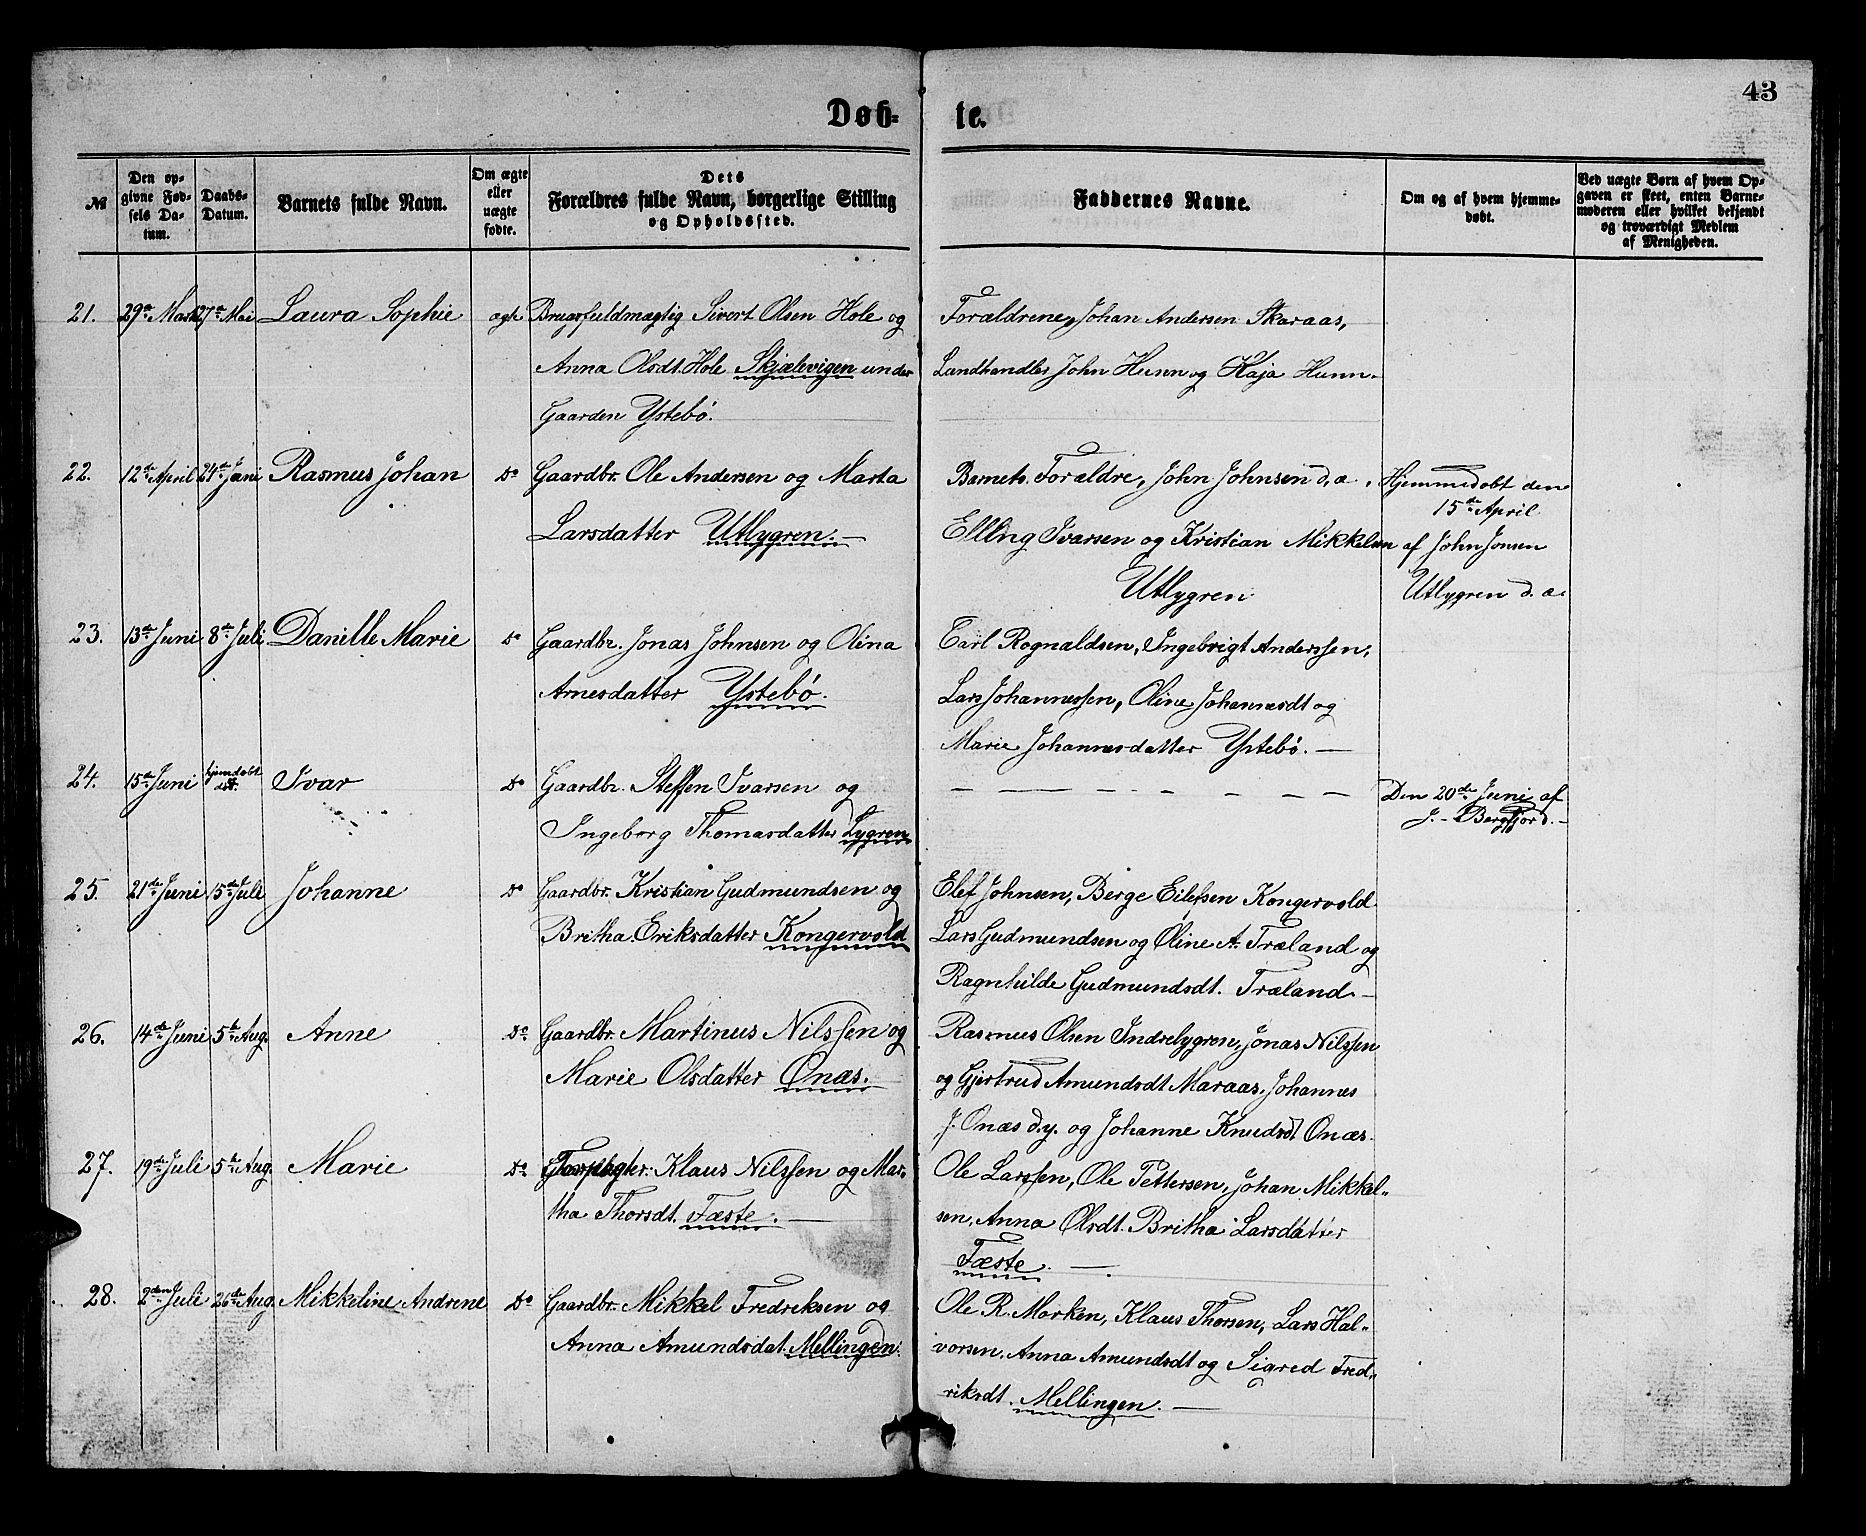 43
Døb- te.
№
Den opgivne Fødsels Datum.
Daabs-Datum.
Barnets fulde Navn.
Om ægte eller uægte fødte.
Dets Forældres fulde Navn, borgerlige Stilling og Opholdssted.
Faddernes Navne.
Om og af hvem hjemmedøbt.
Ved uægte Børn af hvem Opgaven er skeet, enten Barnemoderen eller hvilket bekjendt og troværdigt Medlem af Menigheden.
21. 29de Marts 27de Mai Laura Sophie ægte Brugsfuldmægtig Sivert Olsen Hole og
Anna Olsdt. Hole Skjælevigen under
Gaarden Ystebö.
Forældrene, Johan Andersen Skaraas,
Landhandler John Hunn og Kaja Hunn.
22. 12te April 24de Juni Rasmus Johan Do Gaardbr. Ole Andersen og Marta
Larsdatter Utlygren. —
Barnets Forældre, John Johnsen d. æ.,
Elling Ivarsen og Kristian Mikkelsen
Utlygren
Hjemmedøbt den
15de April
af John Jonsen
Utlygren d. æ.
23. 13de Juni 8de Juli Danille Marie Do Gaardbr. Jonas Johnsen og Olina
Arnesdatter Ystebö.
Carl Rognaldsen, Ingebrigt Anderssen,
Lars Johannessen, Oline Johannesdt og
Marie Johannesdatter Ystebö. —
24. 15de Juni hjemdøbt Ivar Do Gaardbr. Steffen Ivarsen og
Ingeborg Thomasdatter Lygren
— — — — — — — —
Den 20de Juni af
J. Bergfjord. —
25. 21de Juni 15de Juli Johanne Do Gaardbr. Kristian Gudmundsen og
Britha Eriksdatter Kongervold
Elef Johnsen, Berge Eilefsen Kongervold
Lars Gudmundsen og Oline A. Træland og
Ragnhilde Gudmundsdt. Træland. —
26. 14de Juni 5te Aug. Anne Do Gaardbr. Martinus Nilssen og
Marie Olsdatter Onæs. —
Rasmus Olsen Indrelygren, Jonas Nilssen
og Gjertrud Amundsdt Maraas. Johannes
J. Onæs d.y. og Johanne Knudsdt Onæs.
27. 19de Juli 5te Aug. Marie Do Klaus Nilssen og Mar-
tha Thorsdt. Fæste. —
Ole Larssen, Ole Pettersen, Johan Mikkel-
sen, Anna Olsdt. Britha Larsdatter
Fæste. —
28. 2den Juli 26de Aug. Mikkeline Andrene Do Gaardbr. Mikkel Fredriksen og
Anna Amundsdat. Mellingen.
Ole R. Marken, Klaus Thorsen, Lars Hal-
vorsen, Anna Amundsdt og Sigred Fred-
riksdt. Mellingen. —